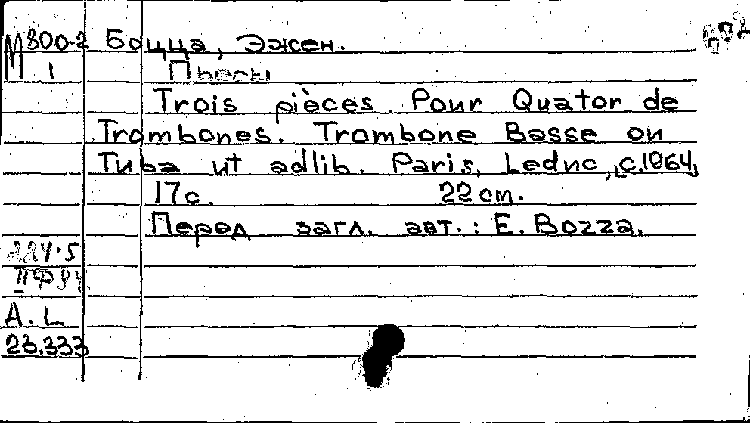 М 800-2 Боцца, Эжен.
1 Пьесы
Trois pièces. Pour Quator de
Trombones. Trombone Basse ou
Tuba ut adlib. Paris, Leduc, [c.1964]
17с. 22 cm.
Перед загл. авт.: E. Bozza.
224-5
A. L
23.333